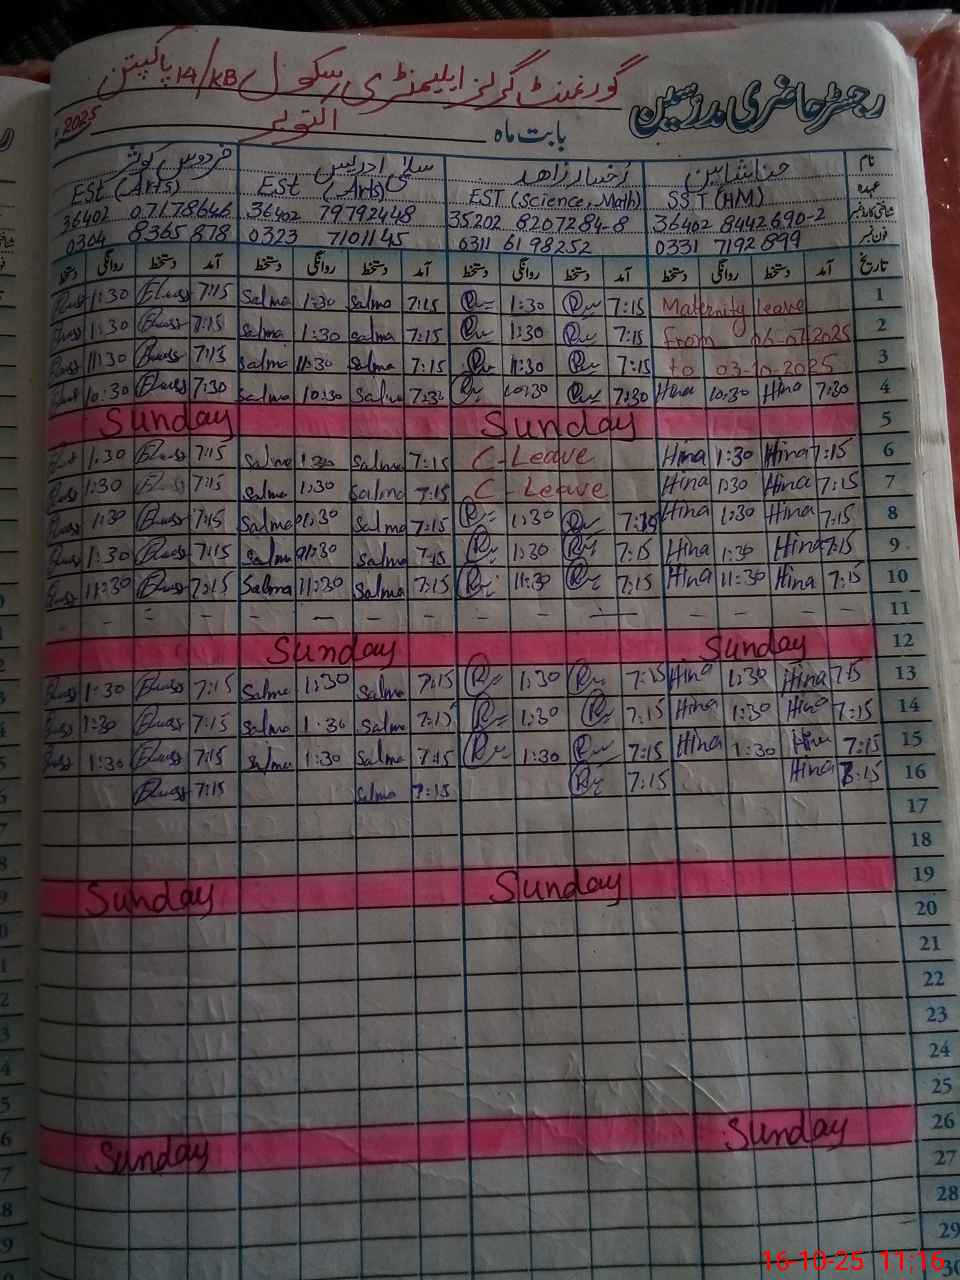 رجسٹر حاضری مدرسین
گورنمنٹ گرلز ایلیمنٹری سکول 14/KB پاکپتن
بابت ماہ اکتوبر 2025
نام حنا شاہین رخسار زاہد سلمیٰ ادریس فردوس کوثر
عہدہ SST (HM) EST (Science, Math) ESt (Arts) ESt (Arts)
36402 8442690-2 35202 8207284-8 36402 79792448 36402 07178646
فون نمبر 0331 7192899 0311 6198252 0323 7101145 0304 8365878
تاریخ آمد دستخط روانگی دستخط آمد دستخط روانگی دستخط آمد دستخط روانگی دستخط آمد دستخط روانگی دستخط
1:30 7:15 Salma 1:30 Salma 7:15 1:30 7:15 Maternity leave 1
1:30 7:15 Salma 1:30 Salma 7:15 1:30 7:15 From 2
11:30 7:15 Salma 11:30 Salma 7:15 11:30 7:15 to 03-10-2025 3
10:30 7:30 Salma 10:30 Salma 7:30 10:30 7:30 Hina 10:30 Hina 7:30 4
Sunday Sunday 5
1:30 7:15 Salma 1:30 Salma 7:15 C-Leave Hina 1:30 Hina 7:15 6
1:30 7:15 Salma 1:30 Salma 7:15 C-Leave Hina 1:30 Hina 7:15 7
1:30 7:15 Salma 1:30 Salma 7:15 1:30 7:15 Hina 1:30 Hina 7:15 8
1:30 7:15 Salma 1:30 Salma 7:15 1:30 7:15 Hina 1:30 Hina 7:15 9
11:30 7:15 Salma 11:30 Salma 7:15 11:30 7:15 Hina 11:30 Hina 7:15 10
– – – – – – – – – – – – – – – 11
Sunday Sunday 12
1:30 7:15 Salma 1:30 Salma 7:15 1:30 7:15 Hina 1:30 Hina 7:15 13
1:30 7:15 Salma 1:30 Salma 7:15 1:30 7:15 Hina 1:30 Hina 7:15 14
1:30 7:15 Salma 1:30 Salma 7:15 1:30 7:15 Hina 1:30 Hina 7:15 15
7:15 Salma 7:15 7:15 Hina :15 16
17
18
Sunday Sunday 19
20
21
22
23
24
25
Sunday Sunday 26
27
28
29
30
16-10-25 11:16